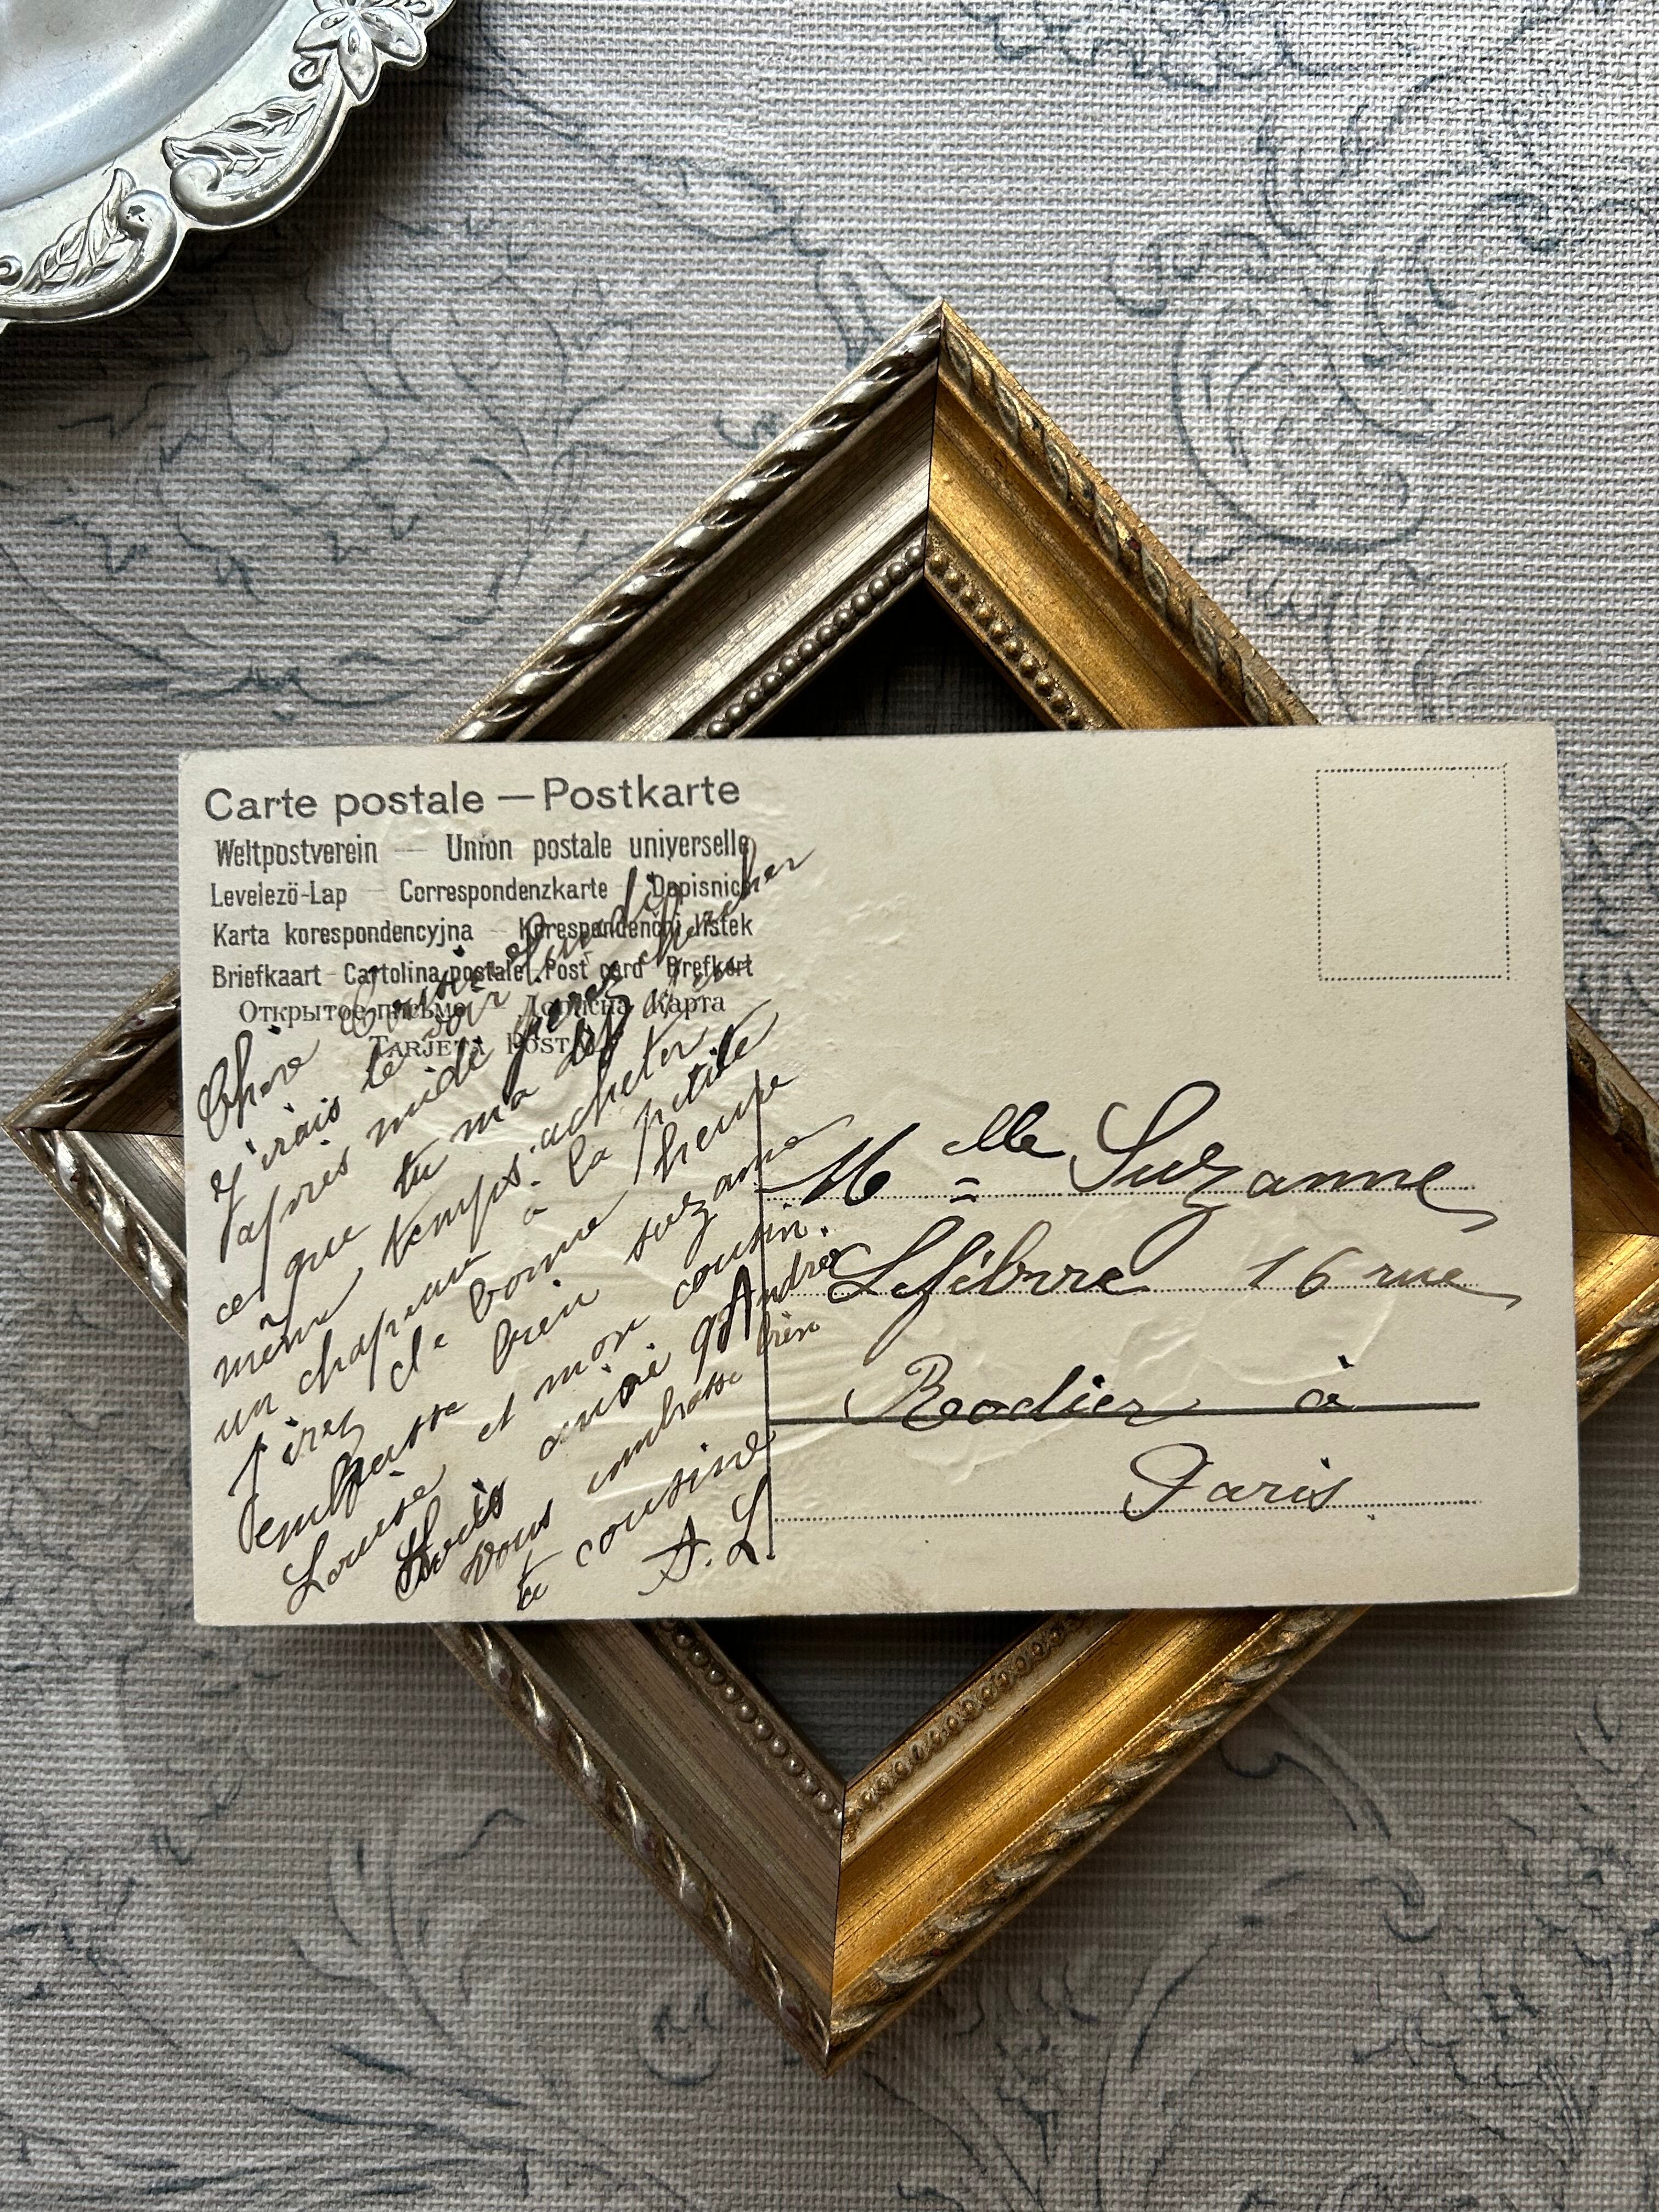 Carte postale — Postkarte
Weltpostverein — Union postale universelle
Levelező-Lap — Correspondenzkarte — Dopisnica
Karta korespondencyjna — Korespondenční lístek
Briefkaart — Cartolina postale — Post card — Brefkort
Открытое письмо — Дописна карта
TARJETA POSTAL
Chère Cousine
j'irais te voir lundi
l'après midi chercher
ce que tu ma dis
même temps acheter
un chapeau à la petite
irez de bonne heure
embrasse bien suzanne
Louise et mon cousin.
Louis ainsi qAndré
vous embrasse bien
ta cousine
A. L.
Mlle Suzanne
Lefébvre 16 rue
Rodier à
Paris